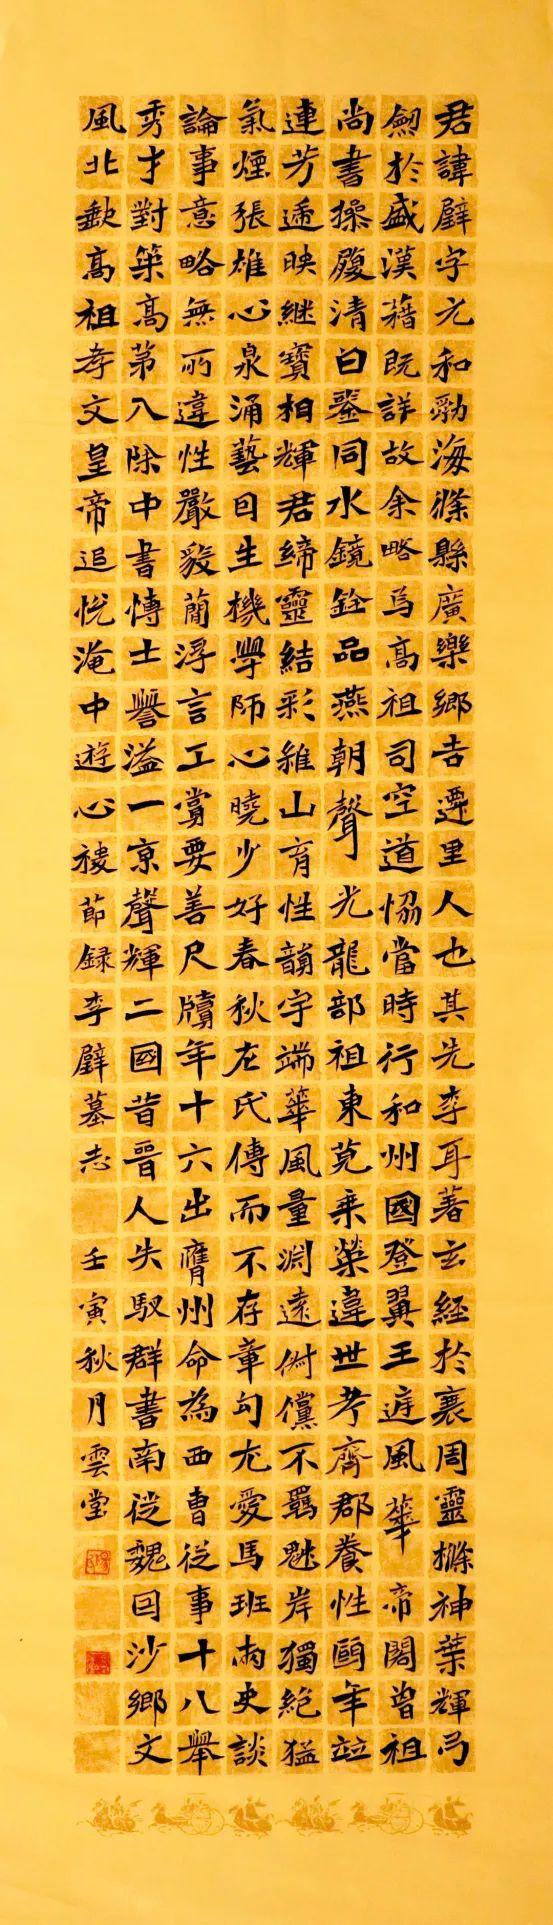 君諱璧字元和勃海條縣廣樂鄉吉遷里人也其先李耳著玄經於衰周靈櫾神葉輝弓
劒於盛漢藉既詳故余略焉高祖司空道協當時行和州國登翼王庭風華帝閣曾祖
尚書操履清白鑒同水鏡銓品燕朝聲光龍部祖東莞乘榮違世考齊郡養性頤年竝
連芳遞映繼寶相輝君締靈結彩維山育性韻宇端華風量淵遠倜儻不羈魁岸獨絕猛
氣煙張雄心泉涌藝日生機學師心曉少好春秋左氏傳而不存章句尤愛馬班兩史談
論事意略無所違性嚴毅蕑浮言工賞要善尺牘年十六出膺州命為西曹從事十八舉
秀才對策高第入除中書博士譽溢一京聲輝二國昔晉人失馭群書南徙魏因沙鄉文
風北缺高祖孝文皇帝追悅淹中遊心稷節録李璧墓志 壬寅秋月雲堂